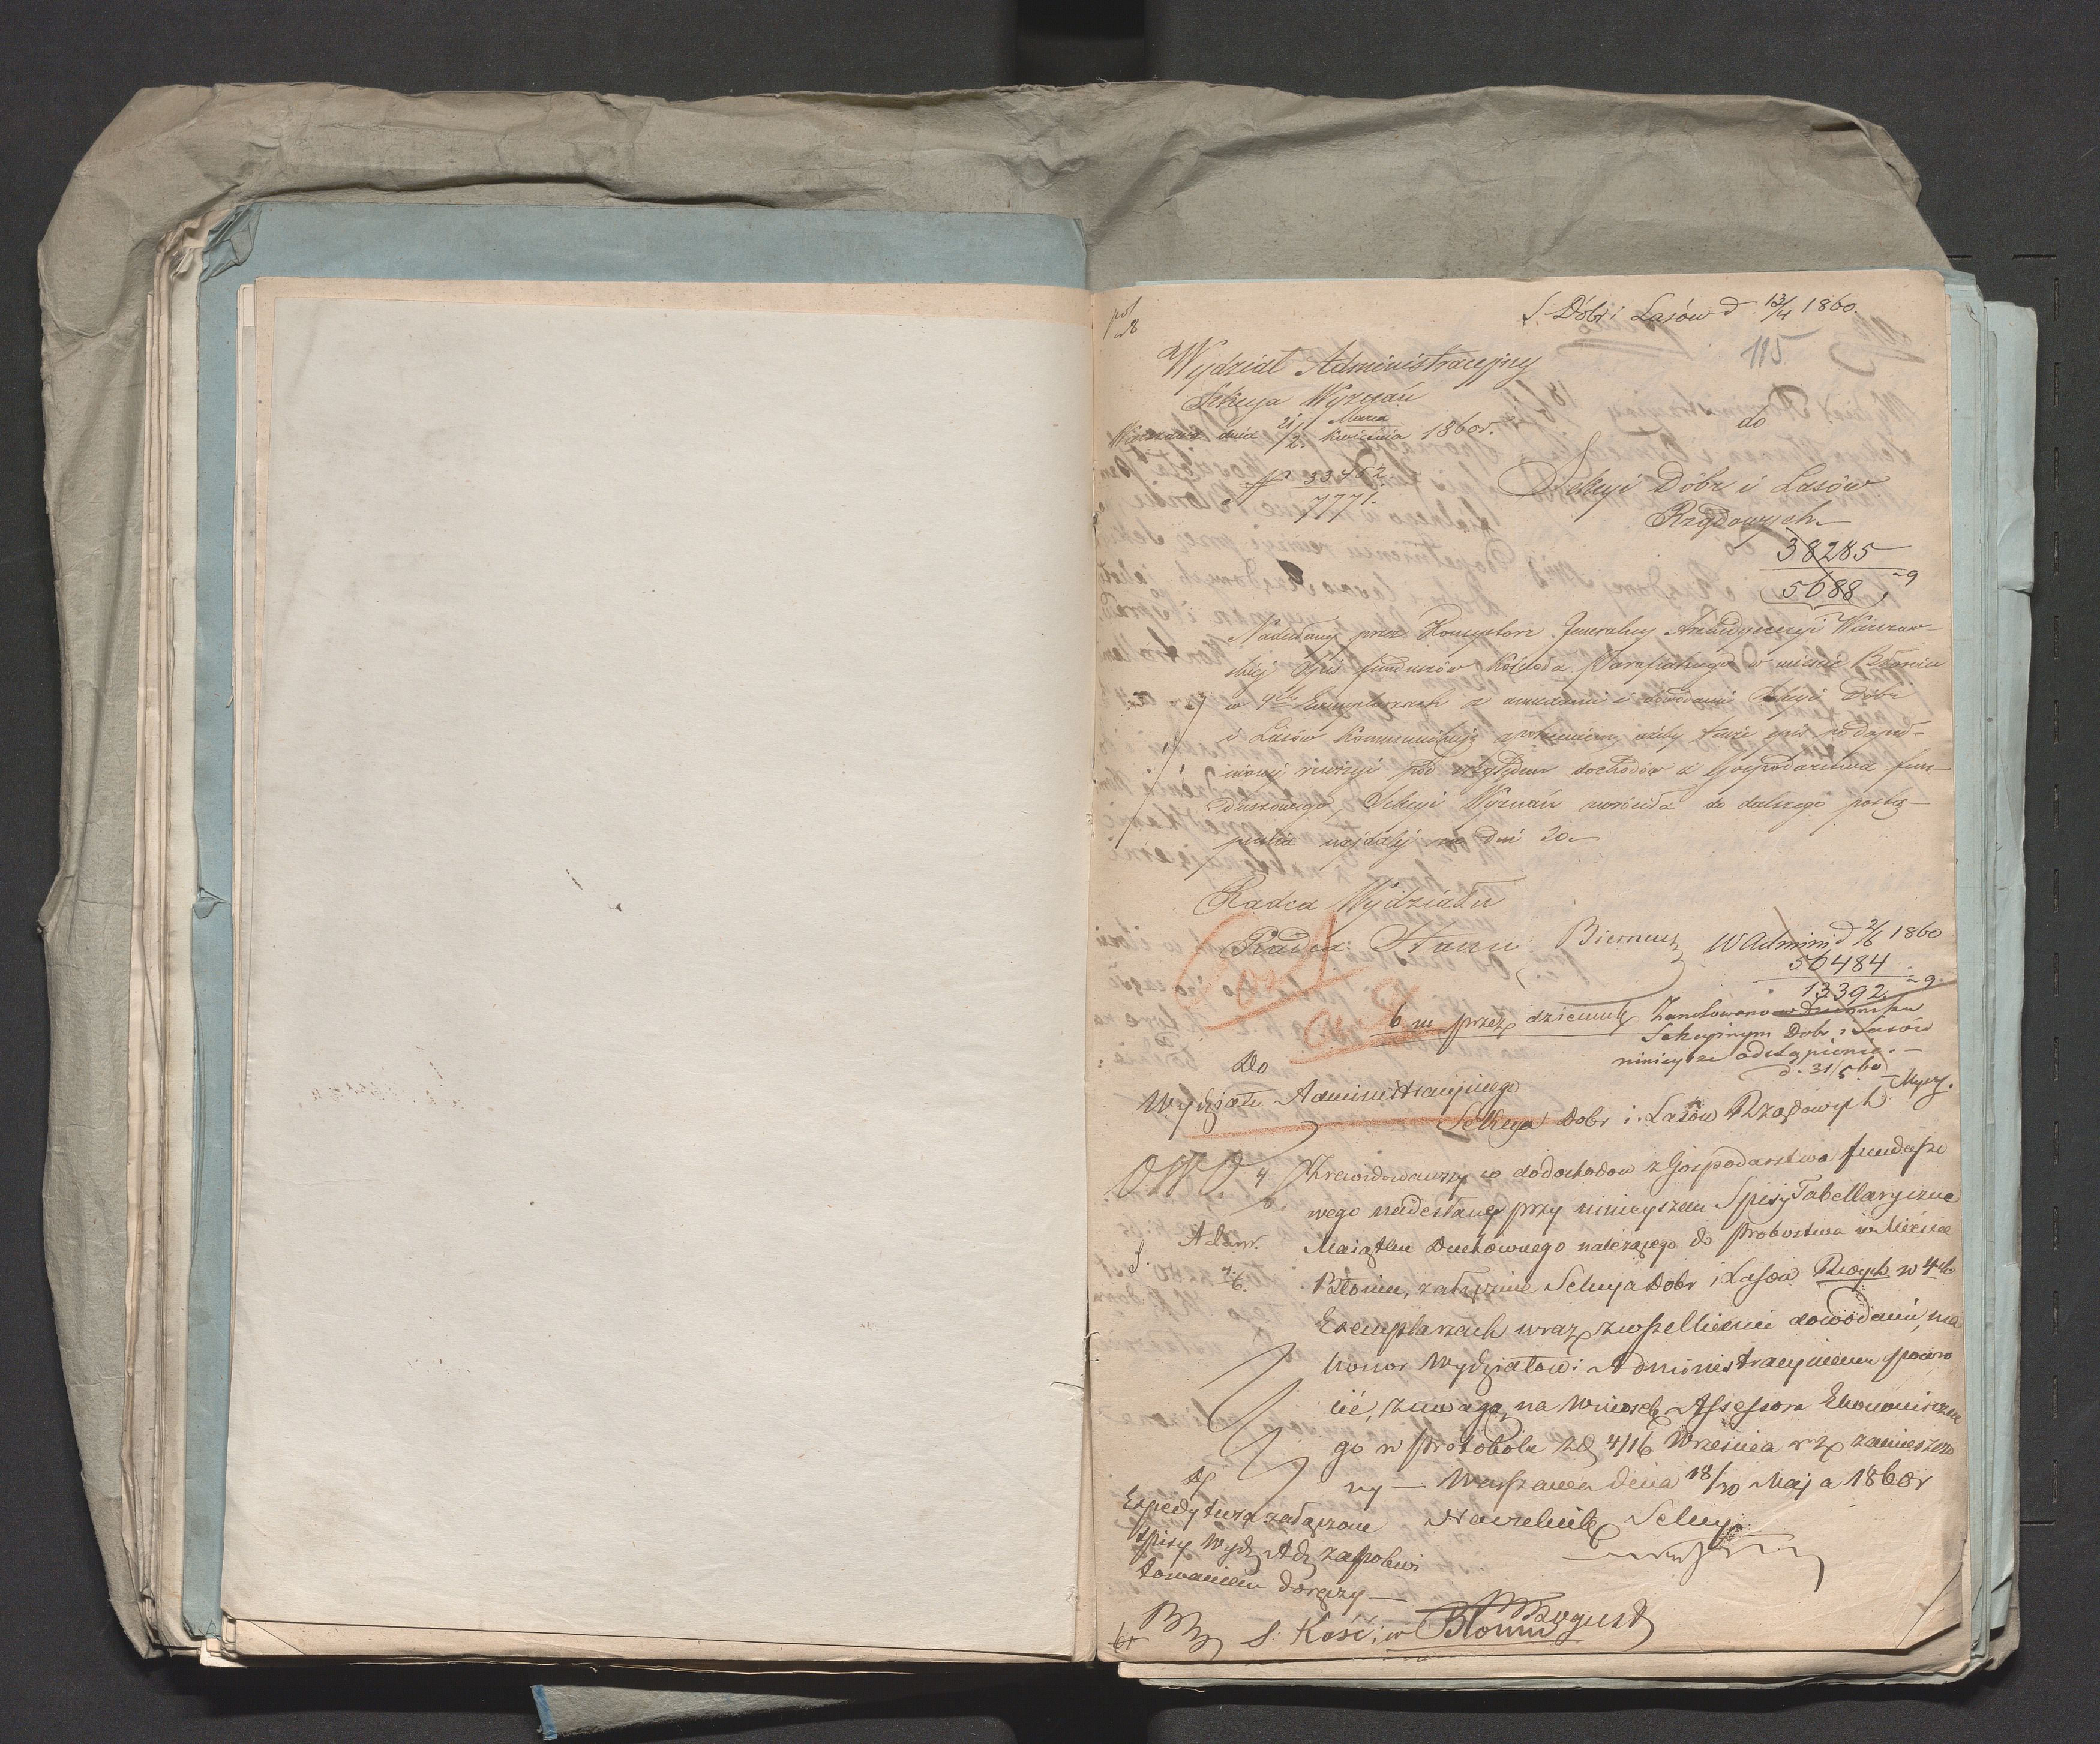 S. Dóbr i Lasów d 13/4 1860.
115
Wydział Administracyjny
Sekcya Wyznań
Warszawa dnia 21 Marca / 2 Kwietnia 1860 r.
N 33462 / 7771.
do
Sekcyi Dóbr i Lasów
Rządowych
38285
5688
Nadesłany przez Konsystorz Jeneralny Archidyecezyi Warszaw-
skiej Spis funduszów Kościoła Parafialnego w mieście Błoniu
w 4ch Exemplarzach z annexami i dowodami Sekcyi Dóbr
i Lasów kommunikuje z poleceniem ażeby tenże spis po dopeł-
nieniu rewizyi pod względem dochodów z Gospodarstwa fun-
duszowego, Sekcyi Wyznań zwróciła do dalszego postą-
pienia najdalej na dni 20.
Radca Wydziału
Radca Stanu
W Admini d 2/6 1860
56484
13392
6 m przez dziennik Zanotowano w Dzienniku
Sekcyinym Dobr i Lasów
ninieysze odstąpienie.
d. 31/5 60
Do
Wydziału Administracyjnego
Sekcya Dobr i Lasów Rządowych
Zrewidowawszy co do dochodow z Gospodarstwa fundusze
wego nadesłane przy ninieyszem Spisy Tabellaryczne
Maiątku Duchownego należącego do Probostwa w Mieście
Błoniu, załączone Sekcya Dobr i Lasow Rząych w 4ch
Exemplarzach wraz z wszelkiemi dowodami, ma
honor Wydziałowi Administracyinemu powró
cić, z uwagą na wniosek Assessora Ekonomiczne
go w protokóle z d 4/16 Września r z zamieszczo
ny — Warszawa dnia 18/30 Maja 1860 r
Naczelnik Sekcyi
Expedytura załączone
Spisy Wydz Ad za pokwi
towaniem doręczy —
S. Kość: w Błoniu